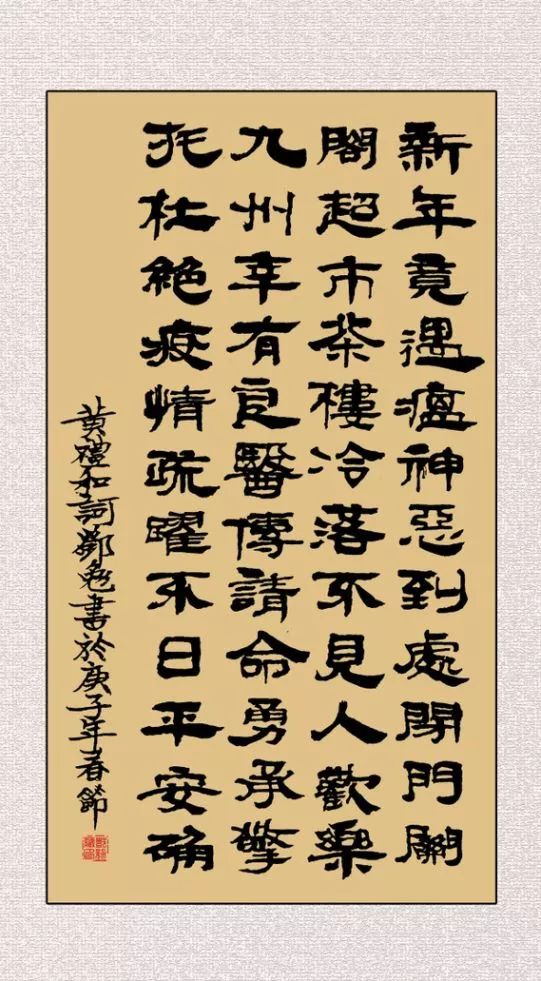 新年竟遇瘟神惡到處閉門關
閣超市茶樓冷落不見人歡樂
九州幸有良醫傳請命勇承擎
托杜絕疫情疏躍不日平安确
黃禮和詞鄧勉書於庚子年春節